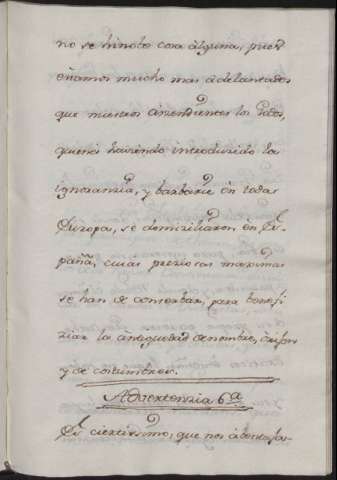 no se hinobò cosa alguna, pues
eramos mucho mas adelantados
que nuestros asendientes los Godos,
quenes haviendo introducido la
ignoranzia, y barbarie en toda
Europa, se domiziliàron en Es-
paña, cuias preziosas maximas
se han de conserbar, para benefi-
ziar la antiguedad de nombre, òrijen
y de costumbres.
Advertenzia 6ª
Es ciertissimo, que nos abentaja-